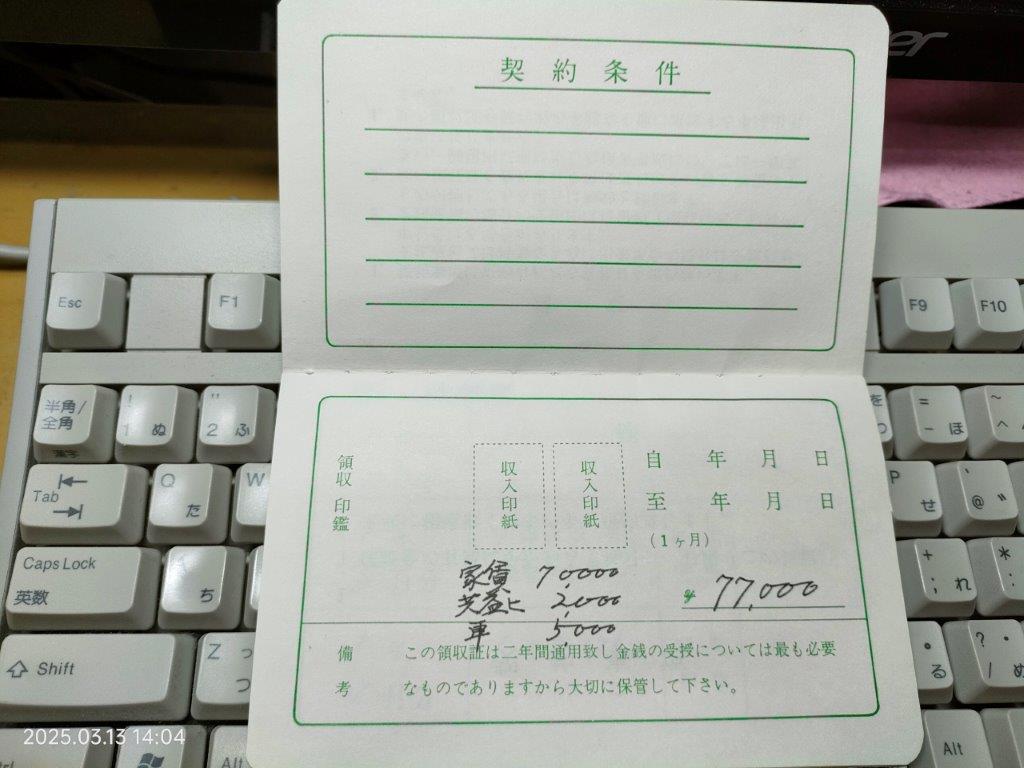 契約条件
領収印鑑
収入印紙
収入印紙
自 年 月 日
至 年 月 日
(1ヶ月)
家賃 70000
共益ヒ 2,000
車 5000
¥ 77,000
備考
この領収証は二年間通用致し金銭の受授については最も必要
なものでありますから大切に保管して下さい。
acer
Esc
F1
F9
F10
半角/
全角
漢字
! 1 ぬ
" 2 ふ
= - ほ
~ ^ へ
Tab
Q た
W
P せ
` @ ゛
Caps Lock
英数
A ち
+ ; れ
* :
Shift
Z つ っ
る
? ・ / め
Alt
Alt
2025.03.13 14:04